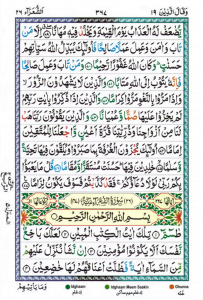 وقال الذين ١٩
٣٦٧
الشعرآء ٢٦
يُّضٰعَفْ لَهُ الْعَذَابُ يَوْمَ الْقِيٰمَةِ وَيَخْلُدْ فِيْهٖ مُهَانًا اِلَّا مَنْ
تَابَ وَاٰمَنَ وَعَمِلَ عَمَلًا صَالِحًا فَاُولٰٓئِكَ يُبَدِّلُ اللّٰهُ سَيِّاٰتِهِمْ
حَسَنٰتٍ وَكَانَ اللّٰهُ غَفُوْرًا رَّحِيْمًا وَمَنْ تَابَ وَعَمِلَ صَالِحًا
فَاِنَّهٗ يَتُوْبُ اِلَى اللّٰهِ مَتَابًا وَالَّذِيْنَ لَا يَشْهَدُوْنَ الزُّوْرَ
وَاِذَا مَرُّوْا بِاللَّغْوِ مَرُّوْا كِرَامًا وَالَّذِيْنَ اِذَا ذُكِّرُوْا بِاٰيٰتِ رَبِّهِمْ
لَمْ يَخِرُّوْا عَلَيْهَا صُمًّا وَّعُمْيَانًا وَالَّذِيْنَ يَقُوْلُوْنَ رَبَّنَا هَبْ
لَنَا مِنْ اَزْوَاجِنَا وَذُرِّيّٰتِنَا قُرَّةَ اَعْيُنٍ وَّاجْعَلْنَا لِلْمُتَّقِيْنَ
اِمَامًا اُولٰٓئِكَ يُجْزَوْنَ الْغُرْفَةَ بِمَا صَبَرُوْا وَيُلَقَّوْنَ فِيْهَا تَحِيَّةً
وَّسَلٰمًا خٰلِدِيْنَ فِيْهَا حَسُنَتْ مُسْتَقَرًّا وَّمُقَامًا قُلْ مَا يَعْبَؤُا
بِكُمْ رَبِّيْ لَوْلَا دُعَآؤُكُمْ فَقَدْ كَذَّبْتُمْ فَسَوْفَ يَكُوْنُ لِزَامًا
بِسْمِ اللّٰهِ الرَّحْمٰنِ الرَّحِيْمِ
طٰسٓمّٓ تِلْكَ اٰيٰتُ الْكِتٰبِ الْمُبِيْنِ لَعَلَّكَ بَاخِعٌ
نَّفْسَكَ اَلَّا يَكُوْنُوْا مُؤْمِنِيْنَ اِنْ نَّشَاْ نُنَزِّلْ عَلَيْهِمْ
مِّنَ السَّمَآءِ اٰيَةً فَظَلَّتْ اَعْنَاقُهُمْ لَهَا خٰضِعِيْنَ
وَمَا يَاْتِيْهِمْ
Idghaam
Idghaam Meem Saakin
Ghunna